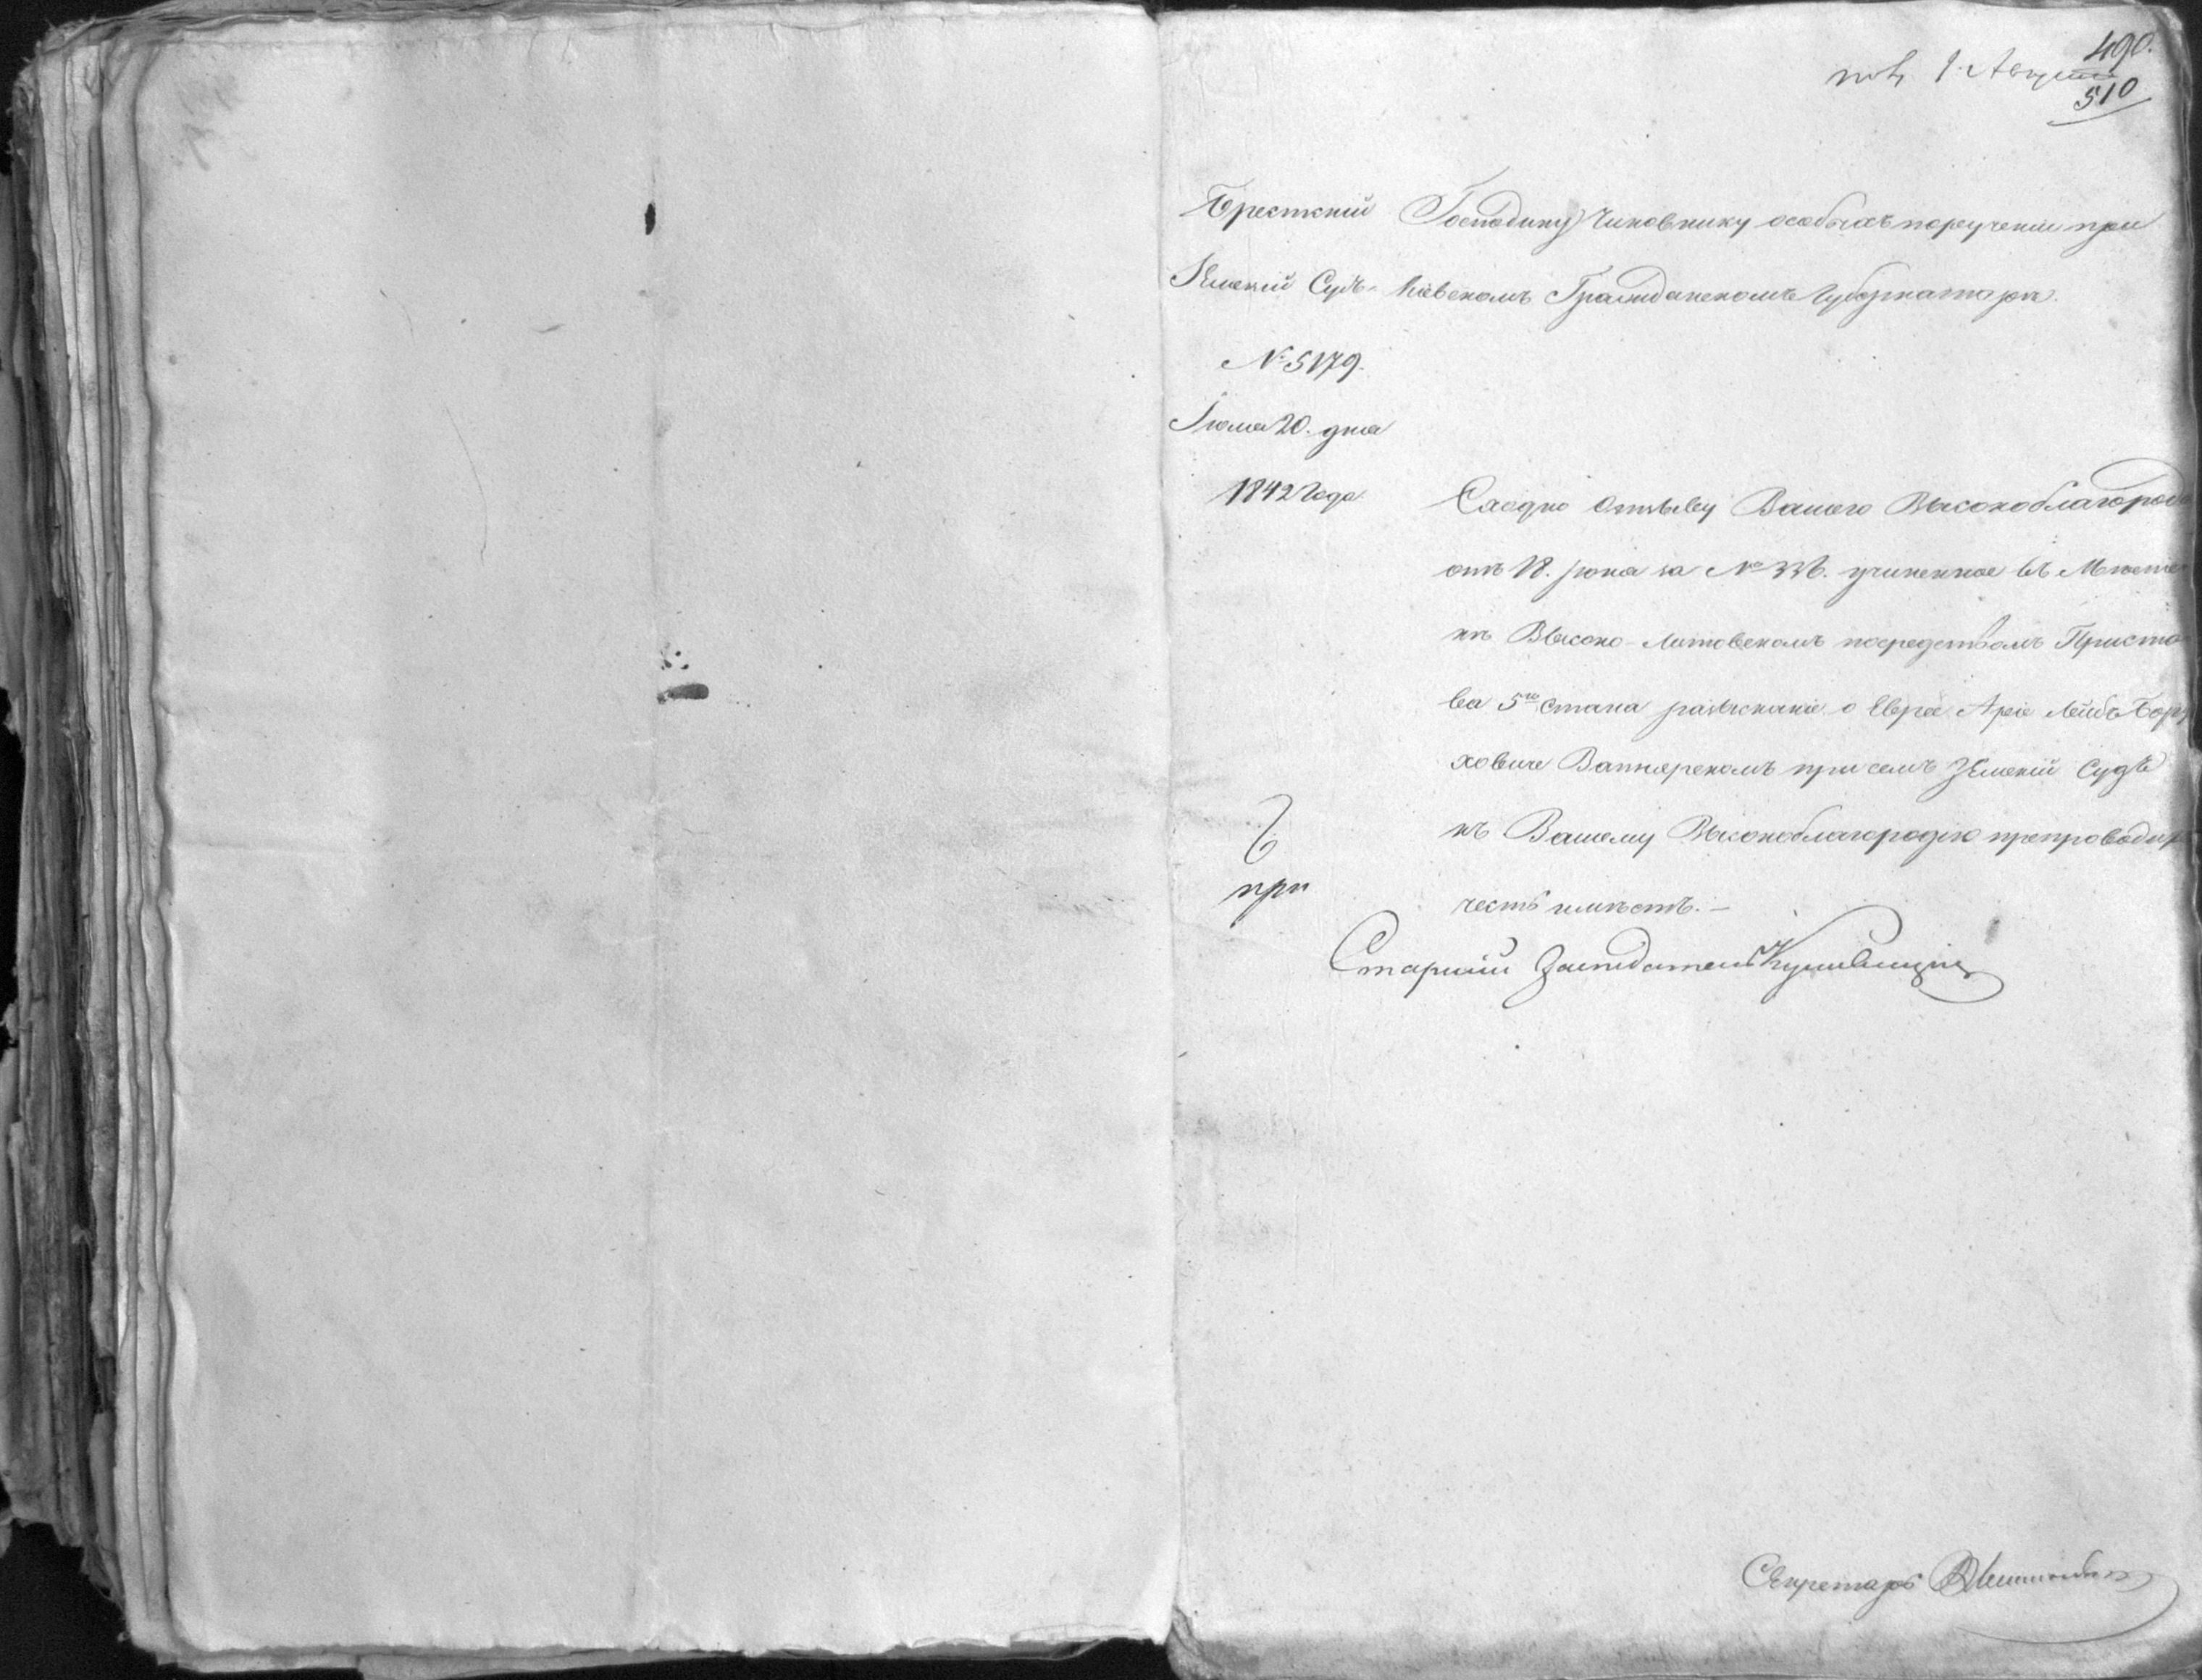 490.
1 Августа
510
Брестскій
Земскій Судъ
№ 5179.
Іюля 20. дня
1842 года.
Господину Чиновнику особыхъ порученіи при
Кіевскомъ Гражданскомъ Губернаторѣ.
Сходно отзыву Вашего Высокоблагород
отъ 18. Іюня за № 336. учиненное въ Мѣсте
кѣ Высоко-Литовскомъ посредствомъ Приста
ва 5го Стана разысканіе о Евреѣ Аріе Лейбѣ Бору
ховиче Вапнярскомъ при семъ Земскій Судъ
къ Вашему Высокоблагородію препроводить
честь имѣетъ.—
при
Старшій Засѣдатель
Секретарь